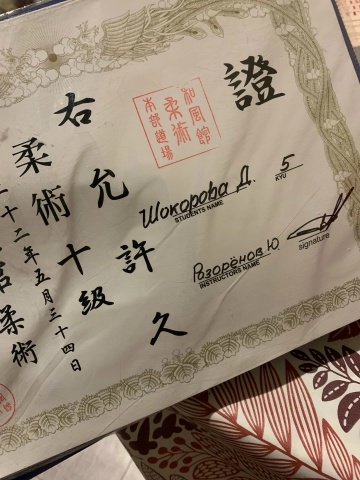 證
和風館
柔術
本部道場
Шокорова Д.
STUDENTS NAME
5
KYU
Разорёнов Ю.
INSTRUCTORS NAME
signature
右允許久
柔術十級
十二年五月三十四日
柔術